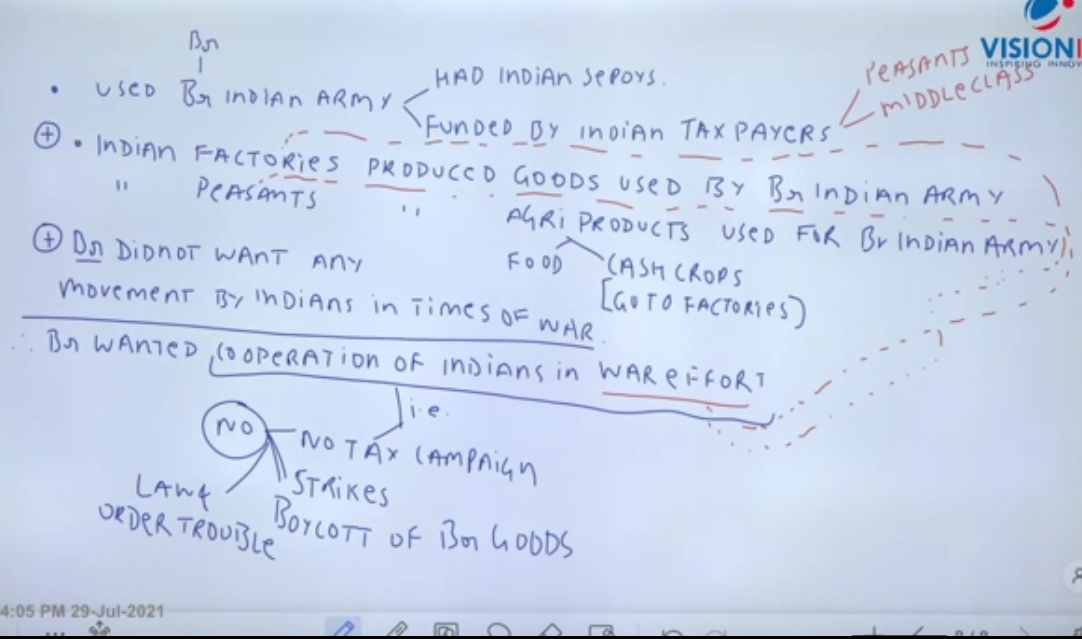 Br
VISIONI
INSPIRING INNOV
PEASANTS
MIDDLE CLASS
• USED Br INDIAN ARMY
HAD INDIAN SEPOYS.
FUNDED BY INDIAN TAX PAYERS
+ • INDIAN FACTORIES PRODUCED GOODS USED BY Br INDIAN ARMY
" PEASANTS " AGRI PRODUCTS USED FOR Br INDIAN ARMY
FOOD
CASH CROPS
[GO TO FACTORIES)
+ Br DIDNOT WANT ANY
MOVEMENT BY INDIANS IN TIMES OF WAR.
∴ Br WANTED COOPERATION OF INDIANS IN WAR EFFORT
i.e.
NO
NO TAX CAMPAIGN
STRIKES
BOYCOTT OF Br GOODS
LAW &
ORDER TROUBLE
4:05 PM 29-Jul-2021